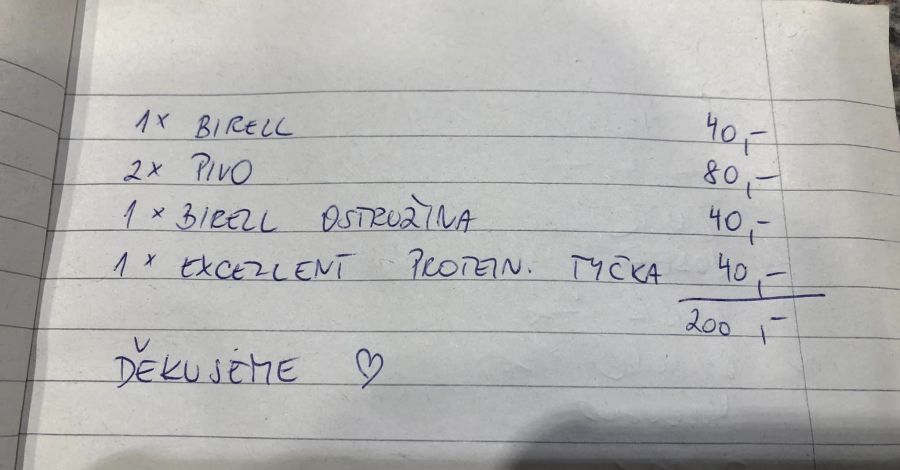 1x BIRELL 40,-
2x PIVO 80,-
1x BIRELL OSTRUŽINA 40,-
1x EXCELLENT PROTEIN. TYČKA 40,-
200,-
DĚKUJEME ♡